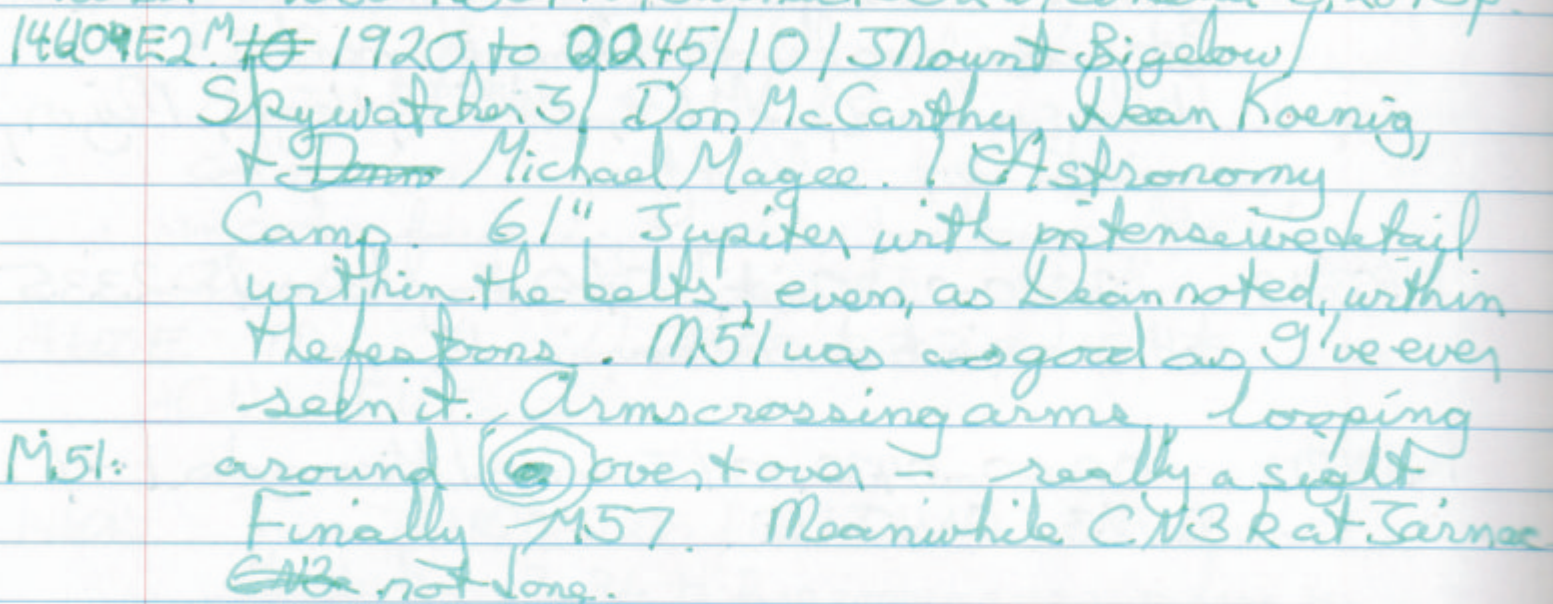 14604E2.M to 1920 to 2245/10/Mount Bigelow/
Skywatcher 3/ Don McCarthy, Dean Koenig,
+ Michael Magee. / Astronomy
Camp. 61" Jupiter, with intense detail
within the belts, even, as Dean noted, within
the festoons. M51 was as good as I've ever
seen it. Arms crossing arms, looping
M51: around over + over - really a sight
Finally M57. Meanwhile CN3 R at Jarnac
CN3 not done.